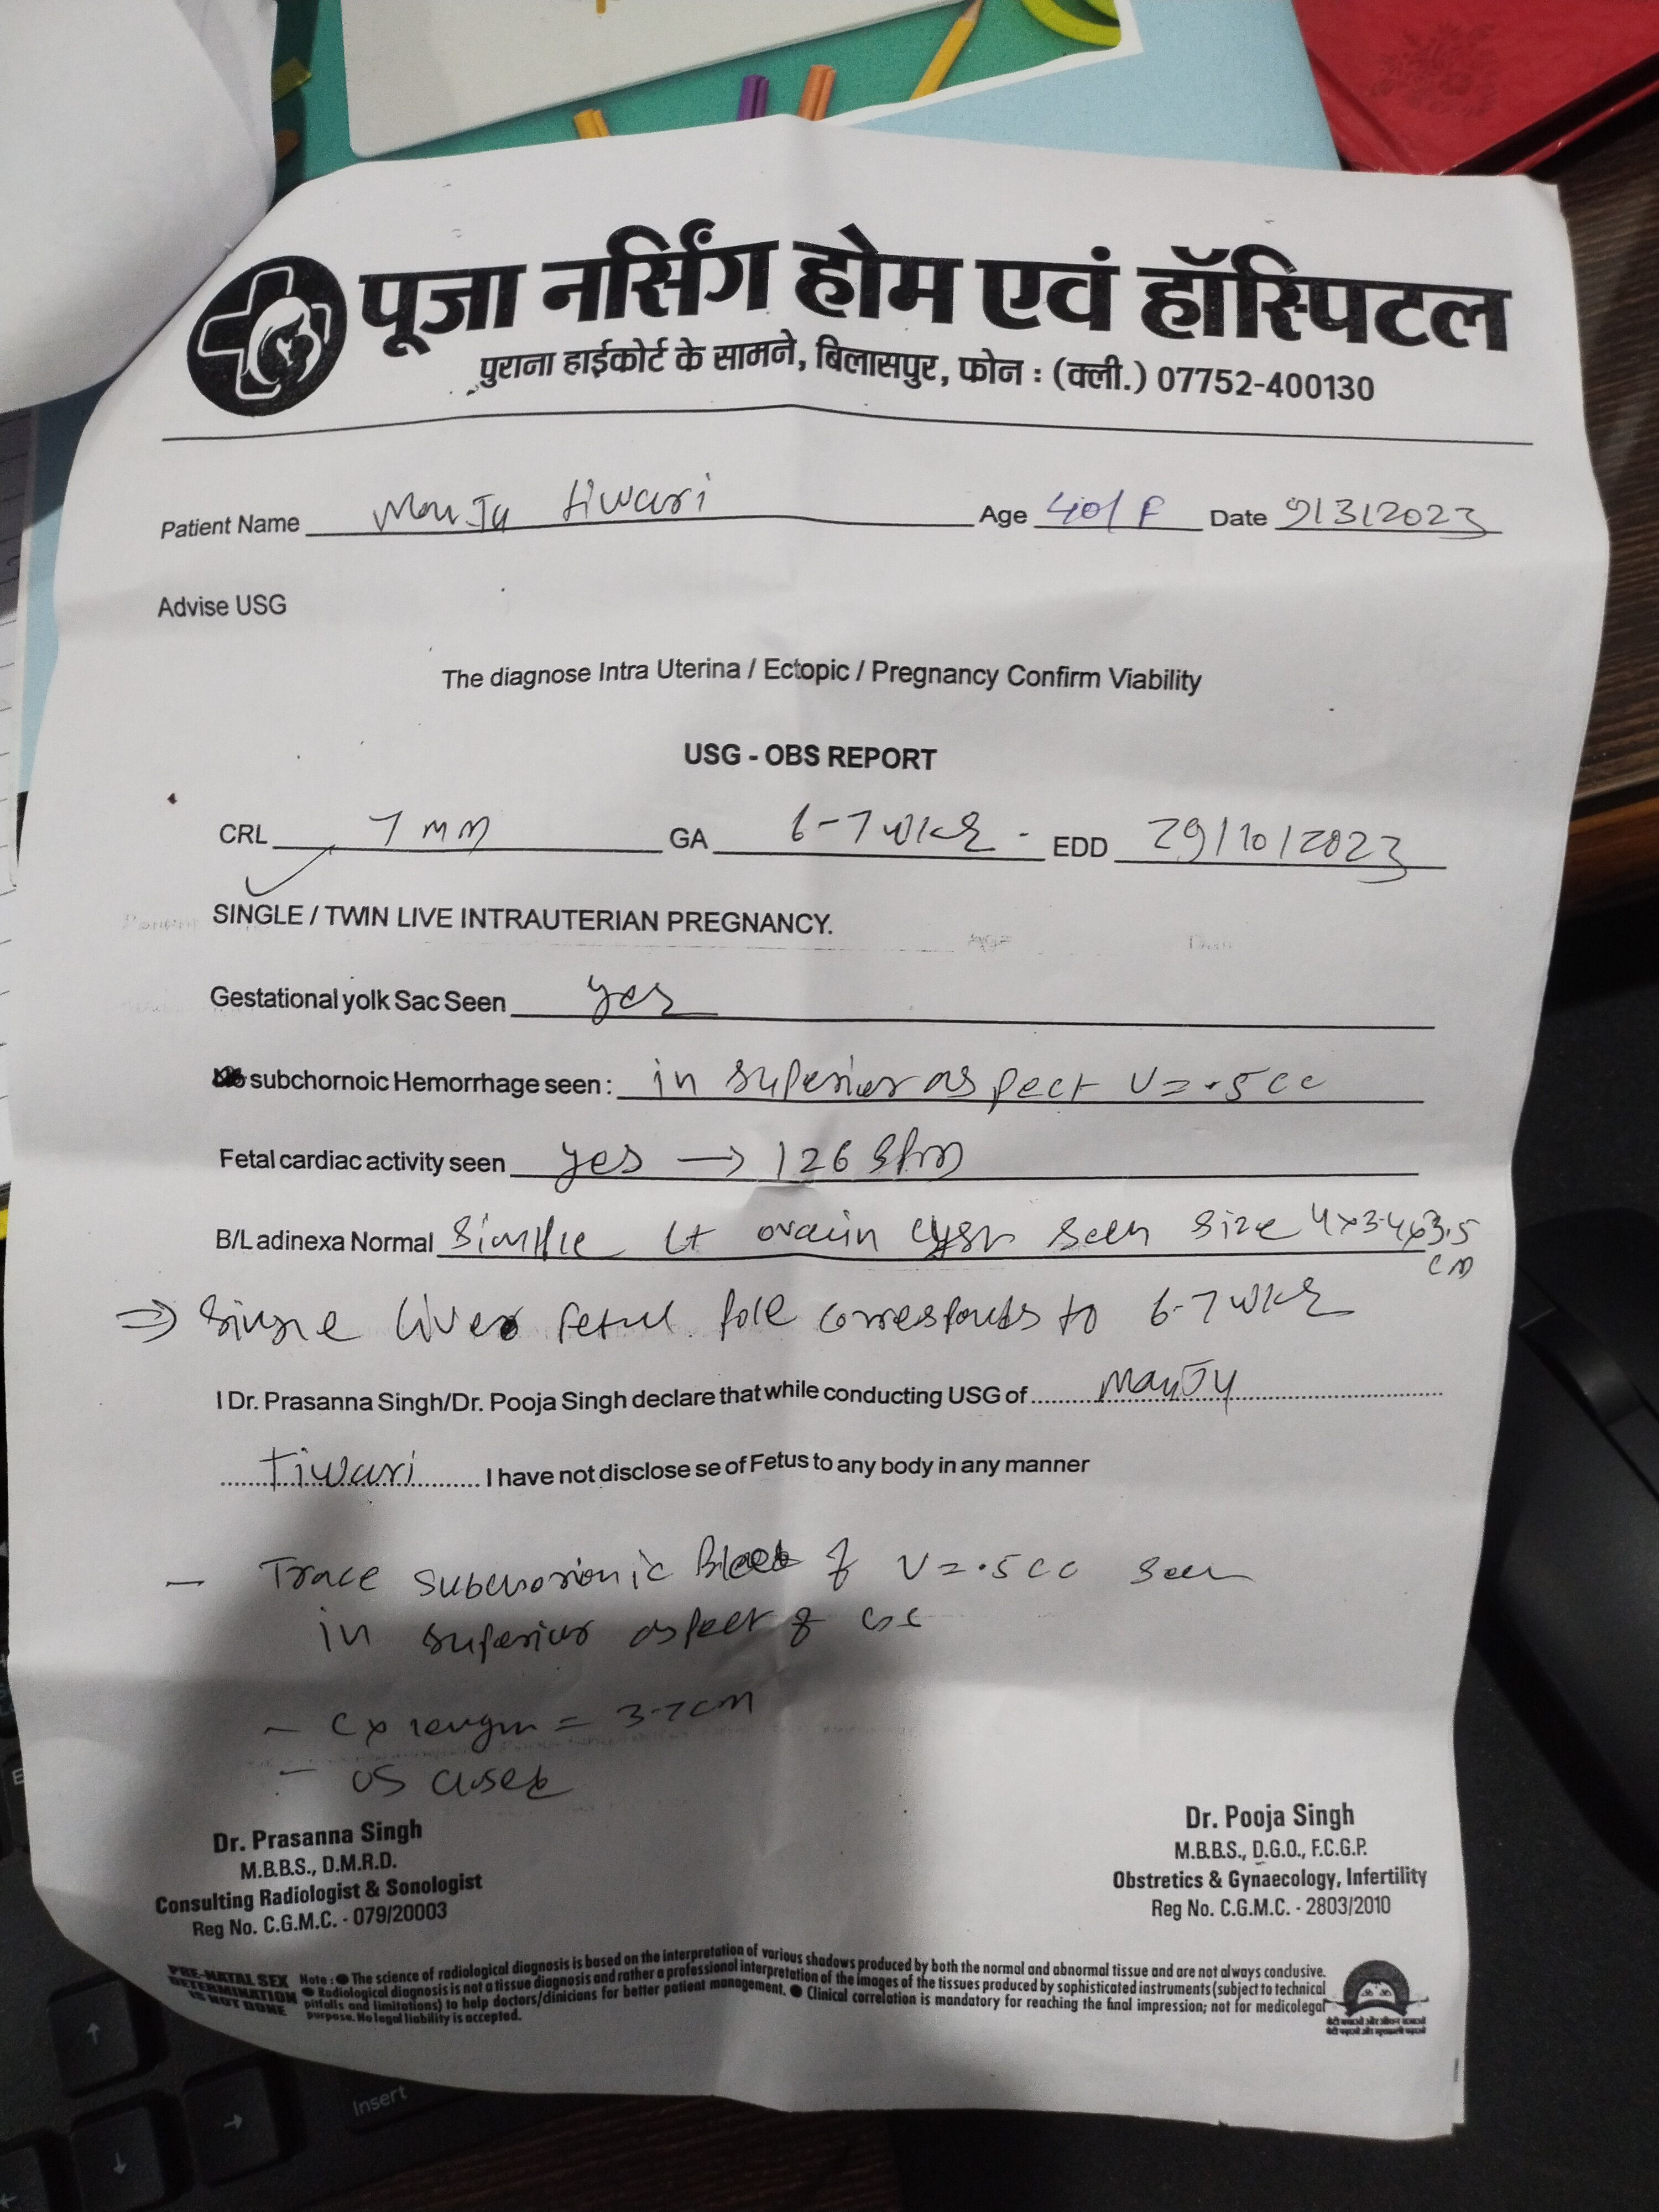 पूजा नर्सिंग होम एवं हॉस्पिटल
पुराना हाईकोर्ट के सामने, बिलासपुर, फोन : (क्ली.) 07752-400130
Patient Name tiwari Age 40/F Date 9/3/2023
Advise USG
The diagnose Intra Uterina / Ectopic / Pregnancy Confirm Viability
USG - OBS REPORT
CRL 7 mm GA 6-7 wks EDD 29/10/2023
SINGLE / TWIN LIVE INTRAUTERIAN PREGNANCY.
Gestational yolk Sac Seen yes
subchornoic Hemorrhage seen : in superior aspect V = .5 cc
Fetal cardiac activity seen yes → 126
B/L adinexa Normal Simple Lt cyst seen size 4x3.4x3.5
cm
⇒ Single fetal pole corresponds to 6-7 wks
I Dr. Prasanna Singh/Dr. Pooja Singh declare that while conducting USG of
Tiwari I have not disclose se of Fetus to any body in any manner
- Trace subchorionic of V = .5 cc seen
in superior aspect of GS
- Cx length = 3.7 cm
- OS closed
Dr. Prasanna Singh
M.B.B.S., D.M.R.D.
Consulting Radiologist & Sonologist
Reg No. C.G.M.C. - 079/20003
Dr. Pooja Singh
M.B.B.S., D.G.O., F.C.G.P.
Obstretics & Gynaecology, Infertility
Reg No. C.G.M.C. - 2803/2010
PRE-NATAL SEX
DETERMINATION
IS NOT DONE
Note : ● The science of radiological diagnosis is based on the interpretation of various shadows produced by both the normal and abnormal tissue and are not always conclusive.
● Radiological diagnosis is not a tissue diagnosis and rather a professional interpretation of the images of the tissues produced by sophisticated instruments (subject to technical
pitfalls and limitations) to help doctors/clinicians for better patient management. ● Clinical correlation is mandatory for reaching the final impression; not for medicolegal
purpose. No legal liability is accepted.
Insert